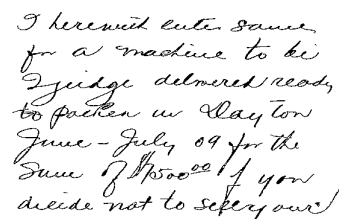 I herewith enter same
for a machine to be
I judge delivered ready
to pack in Dayton
June - July 09 for the
Sum of $7500⁰⁰ if you
decide not to sell your